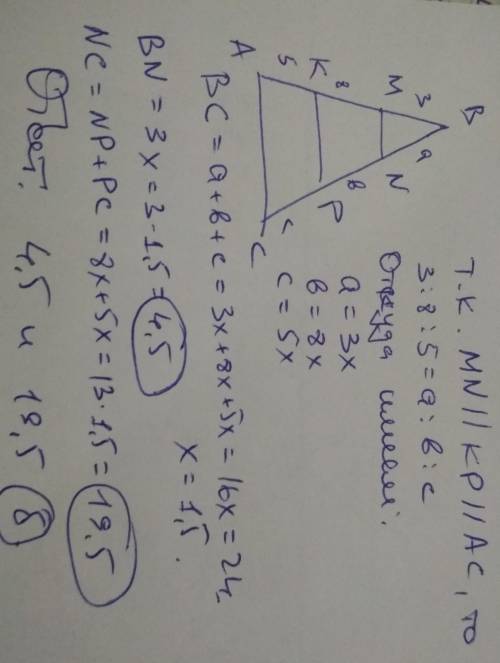 Т.К. MN || KP || AC, то
3:8:5 = a:в:c
Откуда имеем:
a = 3x
в = 8x
c = 5x
B
3
a
M
N
8
в
K
P
5
c
A
C
BC = a+в+c = 3x+8x+5x = 16x = 24,
x = 1,5.
BN = 3x = 3·1,5 = 4,5
NC = NP+PC = 8x+5x = 13·1,5 = 19,5
Ответ: 4,5 и 19,5 8